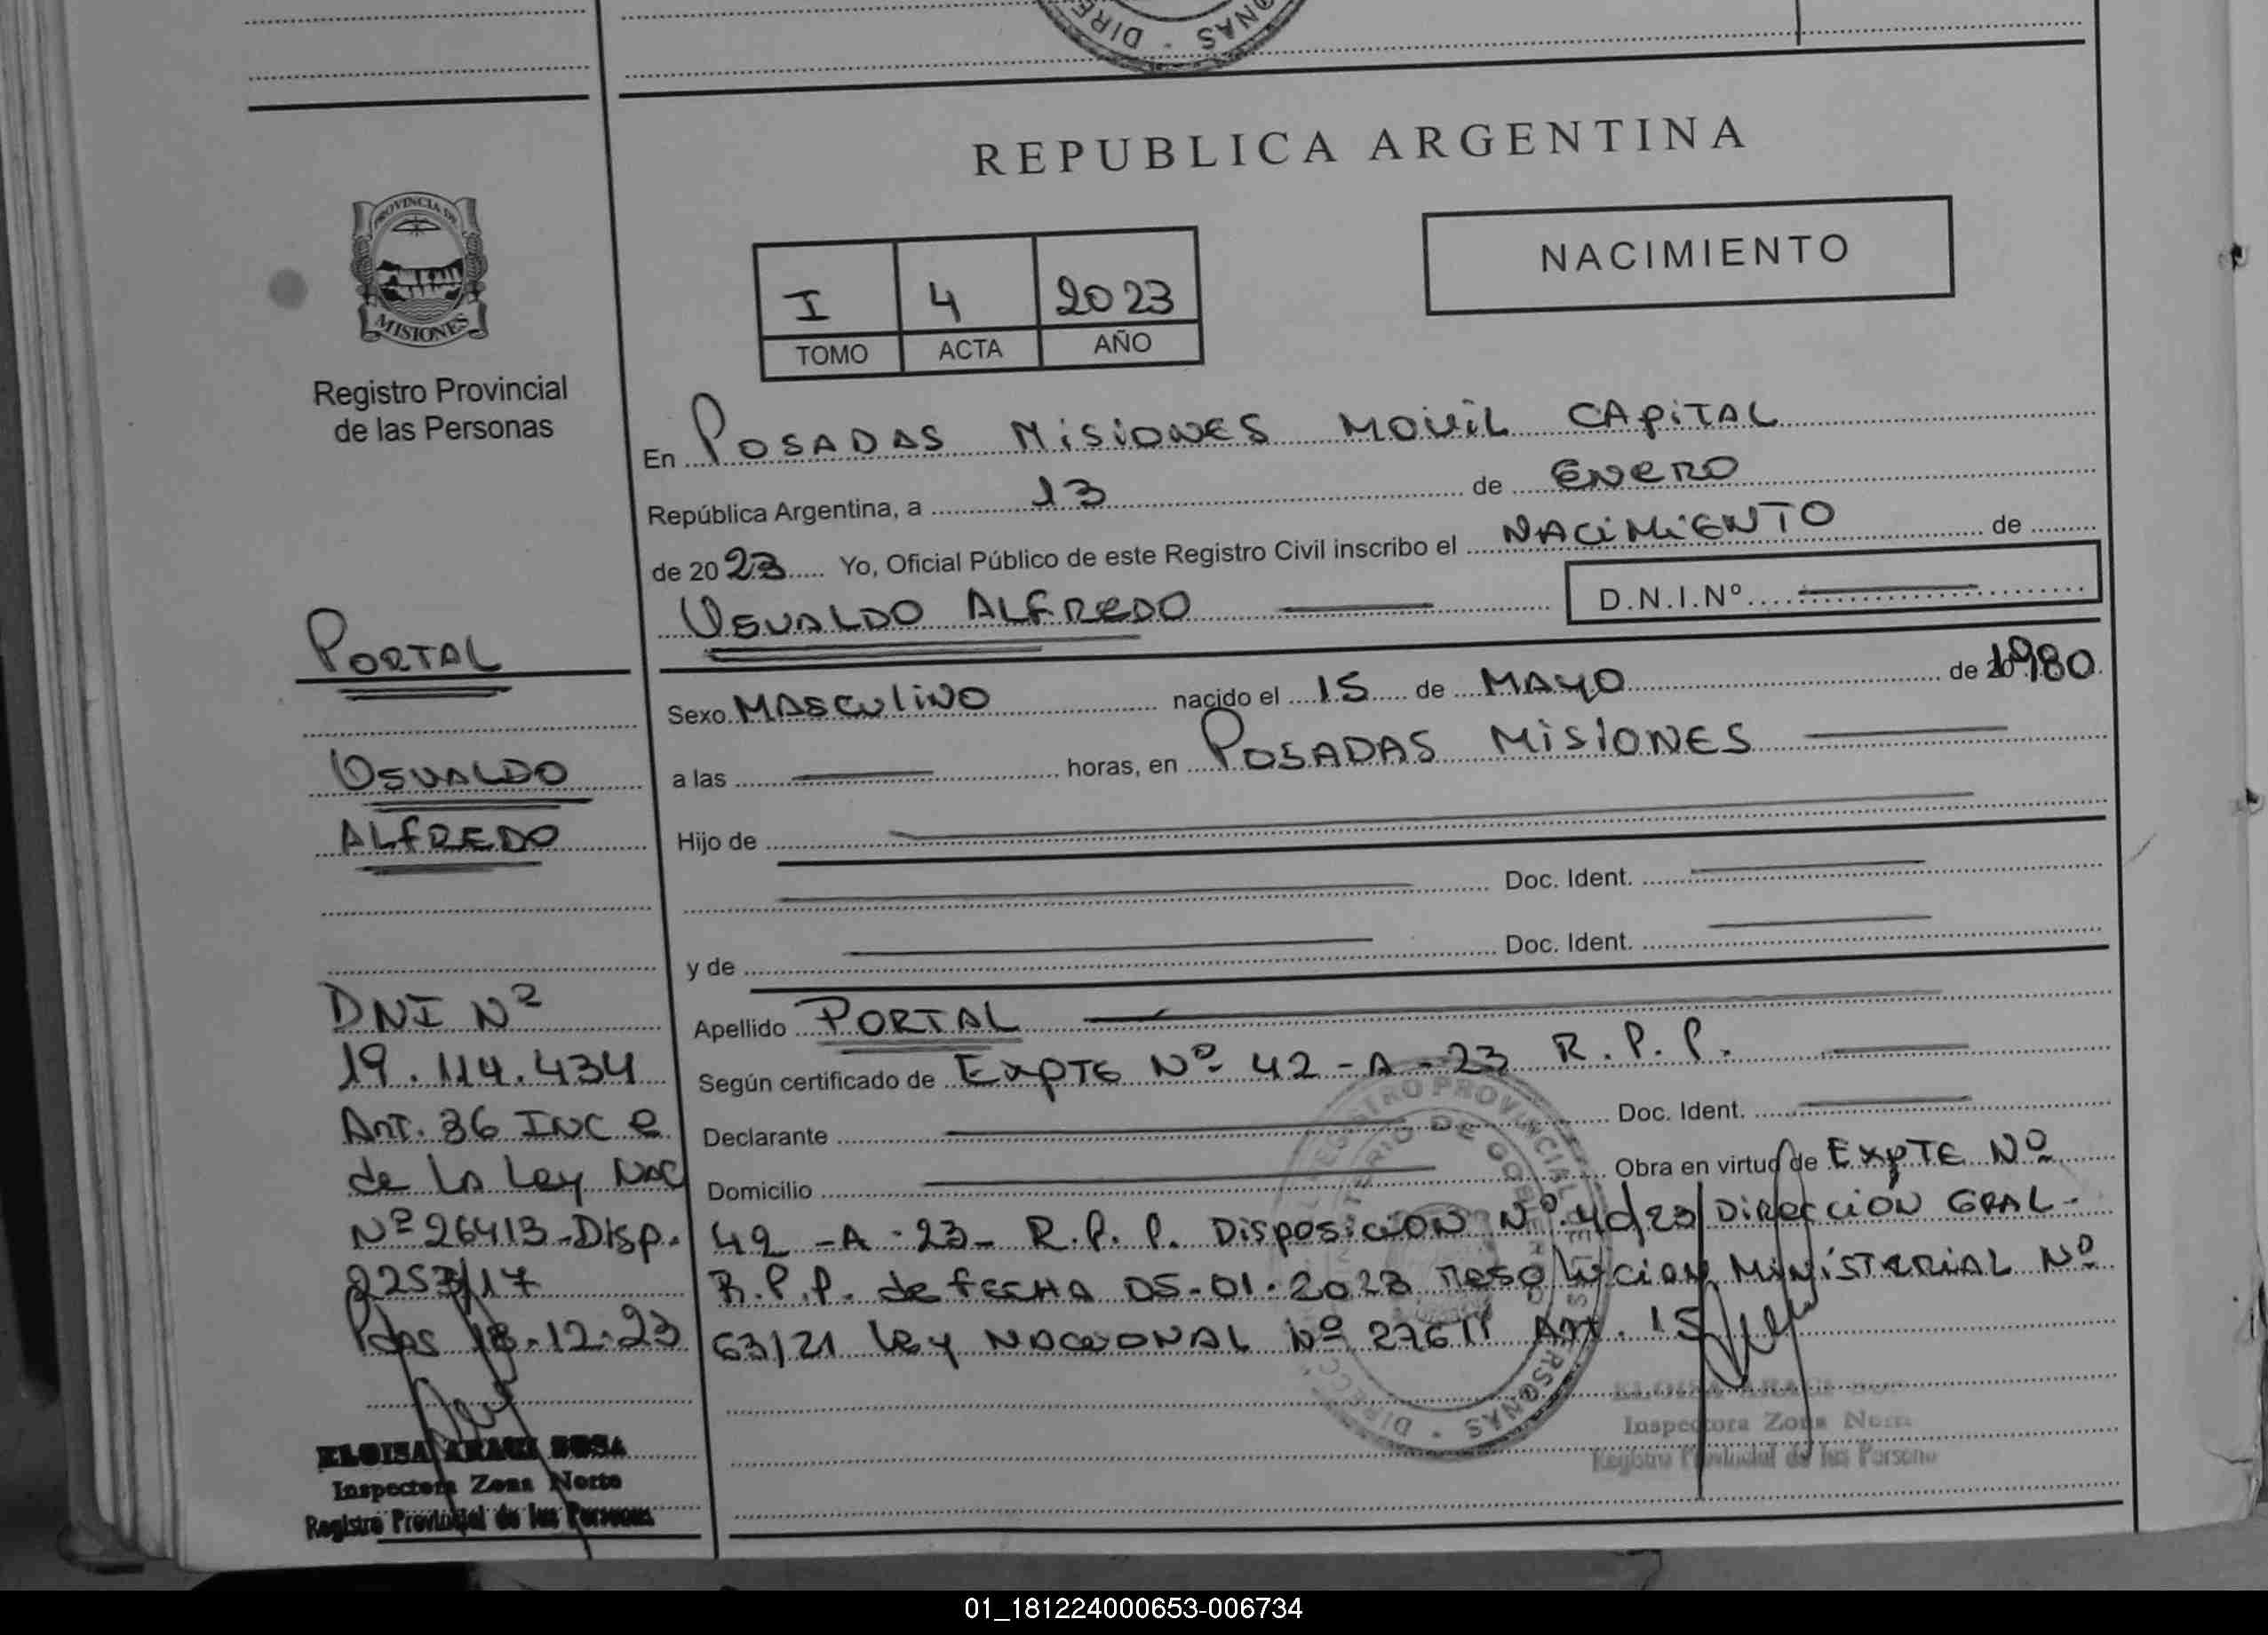 DIRE ONAS
REPUBLICA ARGENTINA
PROVINCIA DE
MISIONES
Registro Provincial
de las Personas
I 4 2023
TOMO ACTA AÑO
NACIMIENTO
En POSADAS MISIONES MOVIL CAPITAL
República Argentina, a 13 de ENERO
de 2023 Yo, Oficial Público de este Registro Civil inscribo el NACIMIENTO de
OSVALDO ALFREDO D.N.I.Nº
Sexo MASCULINO nacido el 15 de MAYO de 1980
a las horas, en POSADAS MISIONES
Hijo de
Doc. Ident.
y de Doc. Ident.
Apellido PORTAL
Según certificado de EXPTE Nº 42-A-23 R.P.P.
Declarante Doc. Ident.
Domicilio Obra en virtud de EXPTE Nº
42-A-23- R.P.P. DISPOSICION Nº 40/23 DIRECCIÓN GRAL-
R.P.P. de FECHA 05-01-2023 RESOLUCION MINISTERIAL Nº
63/21 Ley NACIONAL Nº 27611 ART. 15
Inspectora Zona Norte
Registro Provincial de las Persona
PORTAL
OSVALDO
ALFREDO
DNI Nº
19.114.434
ART. 36 INC e
de LA Ley NAC
Nº 26413-DISP.
2253/17
Pdas 18-12-23
ELOISA ARACI SOSA
Inspectora Zona Norte
Registro Provincial de las Personas
01_181224000653-006734